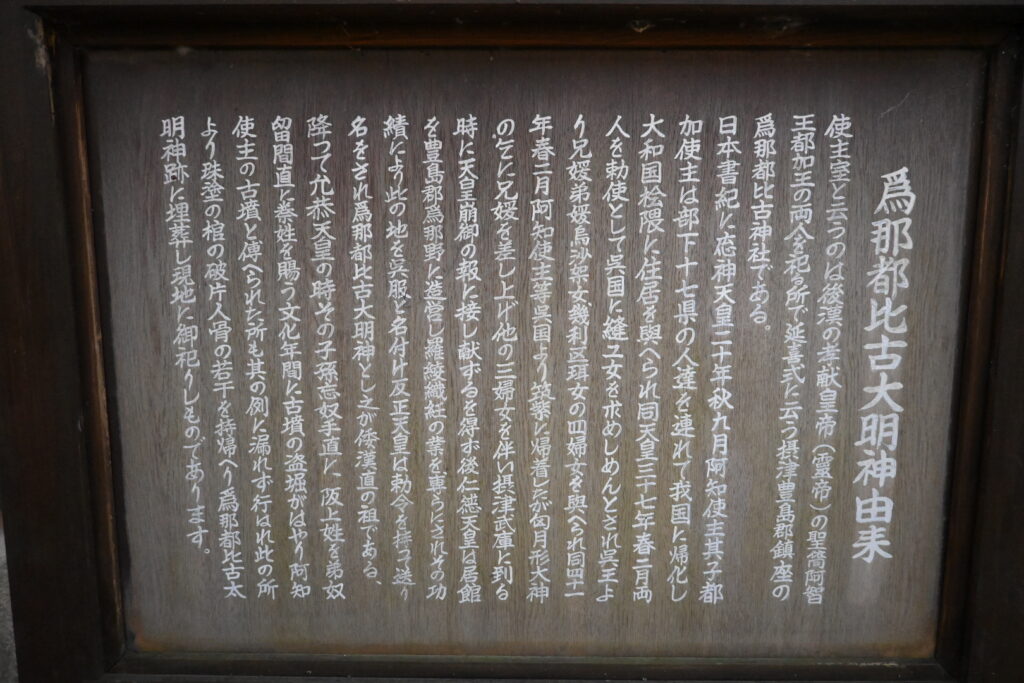 爲那都比古大明神由来
使主室と云うのは後漢の孝献皇帝（靈帝）の聖裔阿智
王都加王の両人を祀る所で延喜式に云う摂津豊島郡鎮座の
爲那都比古神社である。
日本書紀に応神天皇二十年秋九月阿知使主其子都
加使主は部下十七県の人達を連れて我国に帰化し
大和国桧隈に住居を與へられ同天皇三十七年春二月両
人を勅使として呉国に縫工女を求めしめんとされ呉王よ
り兄媛弟媛呉織穴織の四婦女を與へられ同四十一
年春二月阿知使主等呉国より筑紫に帰着したが胸形大神
の乞に兄媛を差し上げ他の三婦女を伴い摂津武庫に到る
時に天皇崩御の報に接し献ずるを得ず後仁徳天皇は居館
を豊島郡爲那野に造営し羅綾織紅の業を専らにされその功
績により此の地を呉服と名付け反正天皇は勅令を持つ
名をされ爲那都比古大明神としたが倭漢直の祖である、
降つて允恭天皇の時その子孫忘奴手直に阪上姓を弟奴
留間直に秦姓を賜う文化年間に古墳の盗堀がはやり阿知
使主の古墳と傳へられた所も其の例に漏れず行はれ此の所
より珠塗の棺の破片人骨の若干を持帰へり爲那都比古大
明神跡に埋葬し現地に御祀りしものであります。